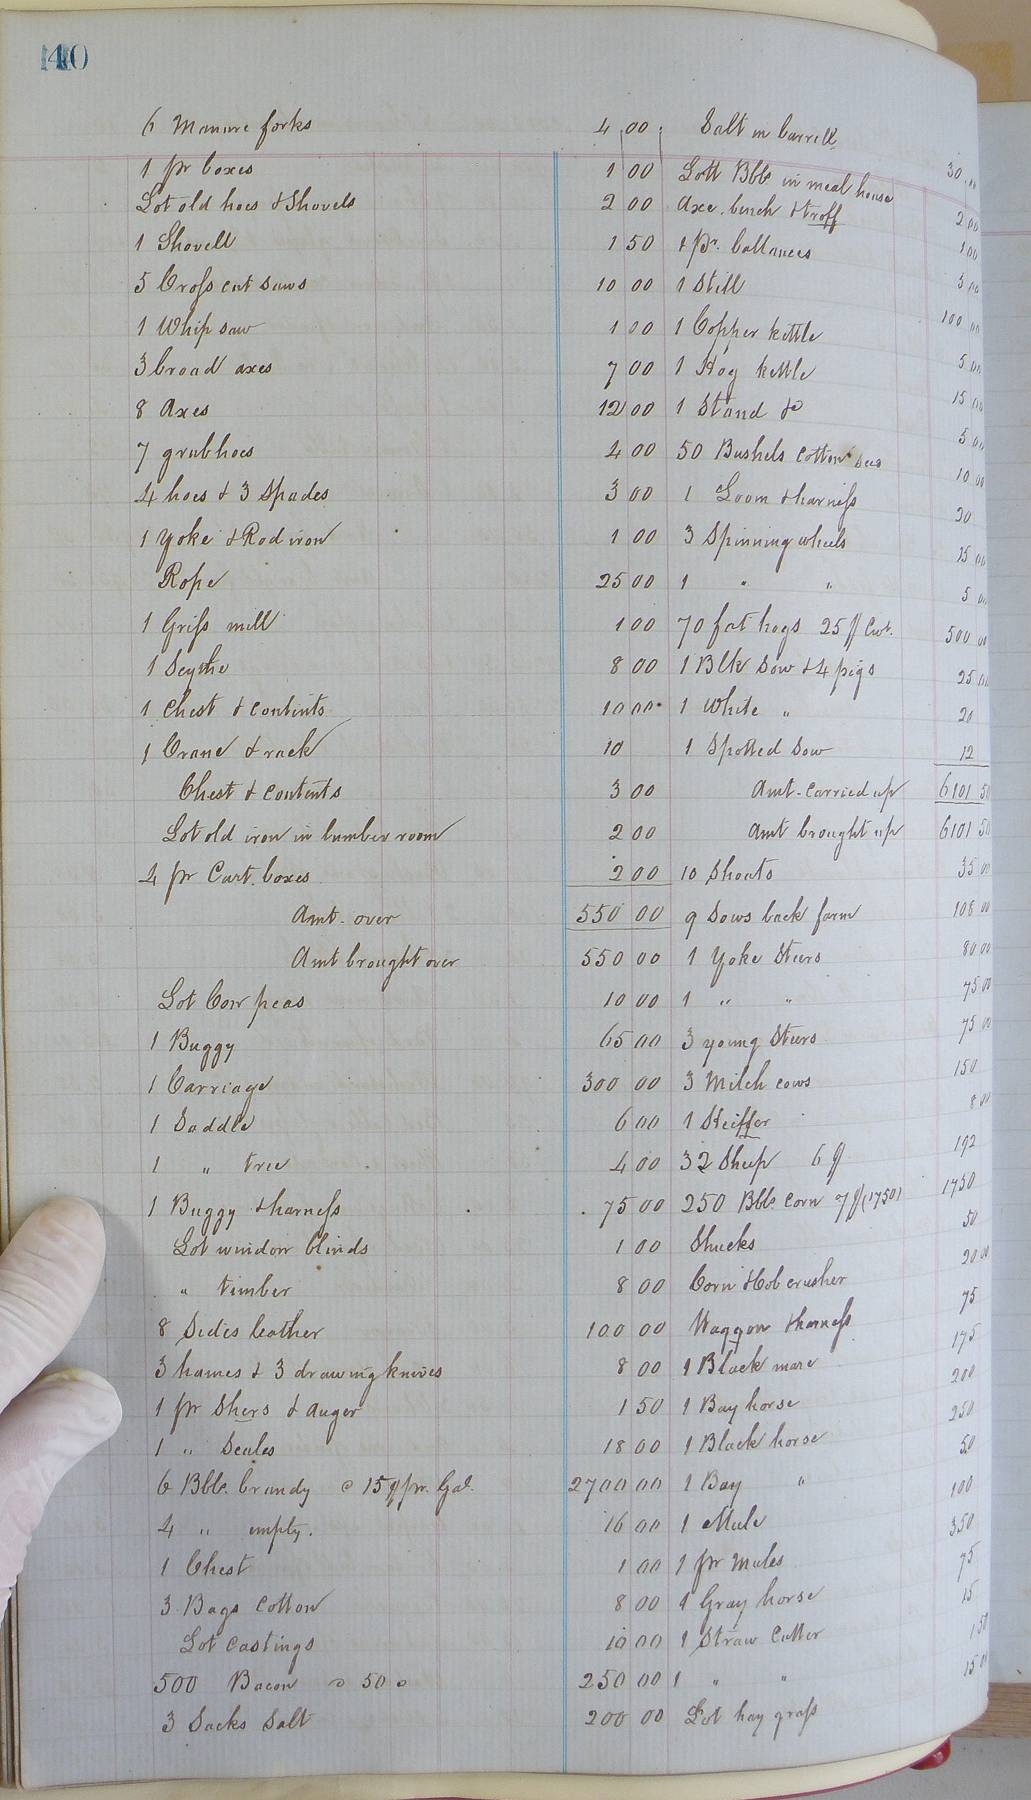 140
6 Manure forks 4 00
1 pr boxes 1 00
Lot old hoes & Shovels 2 00
1 Shovell 1 50
5 Cross cut saws 10 00
1 Whip saw 1 00
3 broad axes 7 00
8 Axes 12 00
7 grubhoes 4 00
4 hoes & 3 Spades 3 00
1 Yoke & Rod iron 1 00
Rope 25 00
1 Griss mill 1 00
1 Scythe 8 00
1 Chest & contints 10 00
1 Crane & rack 10
Chest & contents 3 00
Lot old iron in lumber room 2 00
4 pr Cart. boxes 2 00
Amt. over 550 00
Amt brought over 550 00
Lot Corr peas 10 00
1 Buggy 65 00
1 Carriage 300 00
1 Saddle 6 00
1 " tree 4 00
1 Buggy & harness 75 00
Lot window blinds 1 00
" timber 8 00
8 Sides leather 100 00
3 hames & 3 drawing knives 8 00
1 pr Shers & auger 1 50
1 " Scales 18 00
6 Bbls. brandy @ 15 $ pr. Gal. 2700 00
4 " empty. 16 00
1 Chest 1 00
3 Bags Cotton 8 00
Lot castings 10 00
500 Bacon @ 50 c 250 00
3 Sacks Salt 200 00
Salt in barrell 30 00
Lott Bbls in meal house 2 00
Axe. bench & troff 1 00
1 Pr. ballances 5 00
1 Still 100 00
1 Copper kettle 5 00
1 Hog kettle 15 00
1 Stand do 5 00
50 Bushels cotton 10 00
1 Loom & harness 20
3 Spinning wheels 15 00
1 " " 5 00
70 fat hogs 25 $ Cwt. 500 00
1 Blk Sow & 4 pigs 25 00
1 White " 20
1 Spotted Sow 12
Amt. carried up 6101 50
Amt brought up 6101 50
10 Shoats 35 00
9 Sows back farm 108 00
1 Yoke Steers 80 00
1 " " 75 00
3 young Steers 75 00
3 Milch cows 150
1 Heiffer 8 00
32 Sheep 6 $ 192
250 Bbls. Corn 7 $ (1750) 1750
Shucks 50
Corn & Cob crusher 20 00
Waggon & harness 75
1 Black mare 175
1 Bay horse 200
1 Black horse 250
1 Bay " 50
1 Mule 100
1 pr Mules 350
1 Gray horse 75
1 Straw Cutter 15
1 " " 1 50
Lot hay grass 15 00